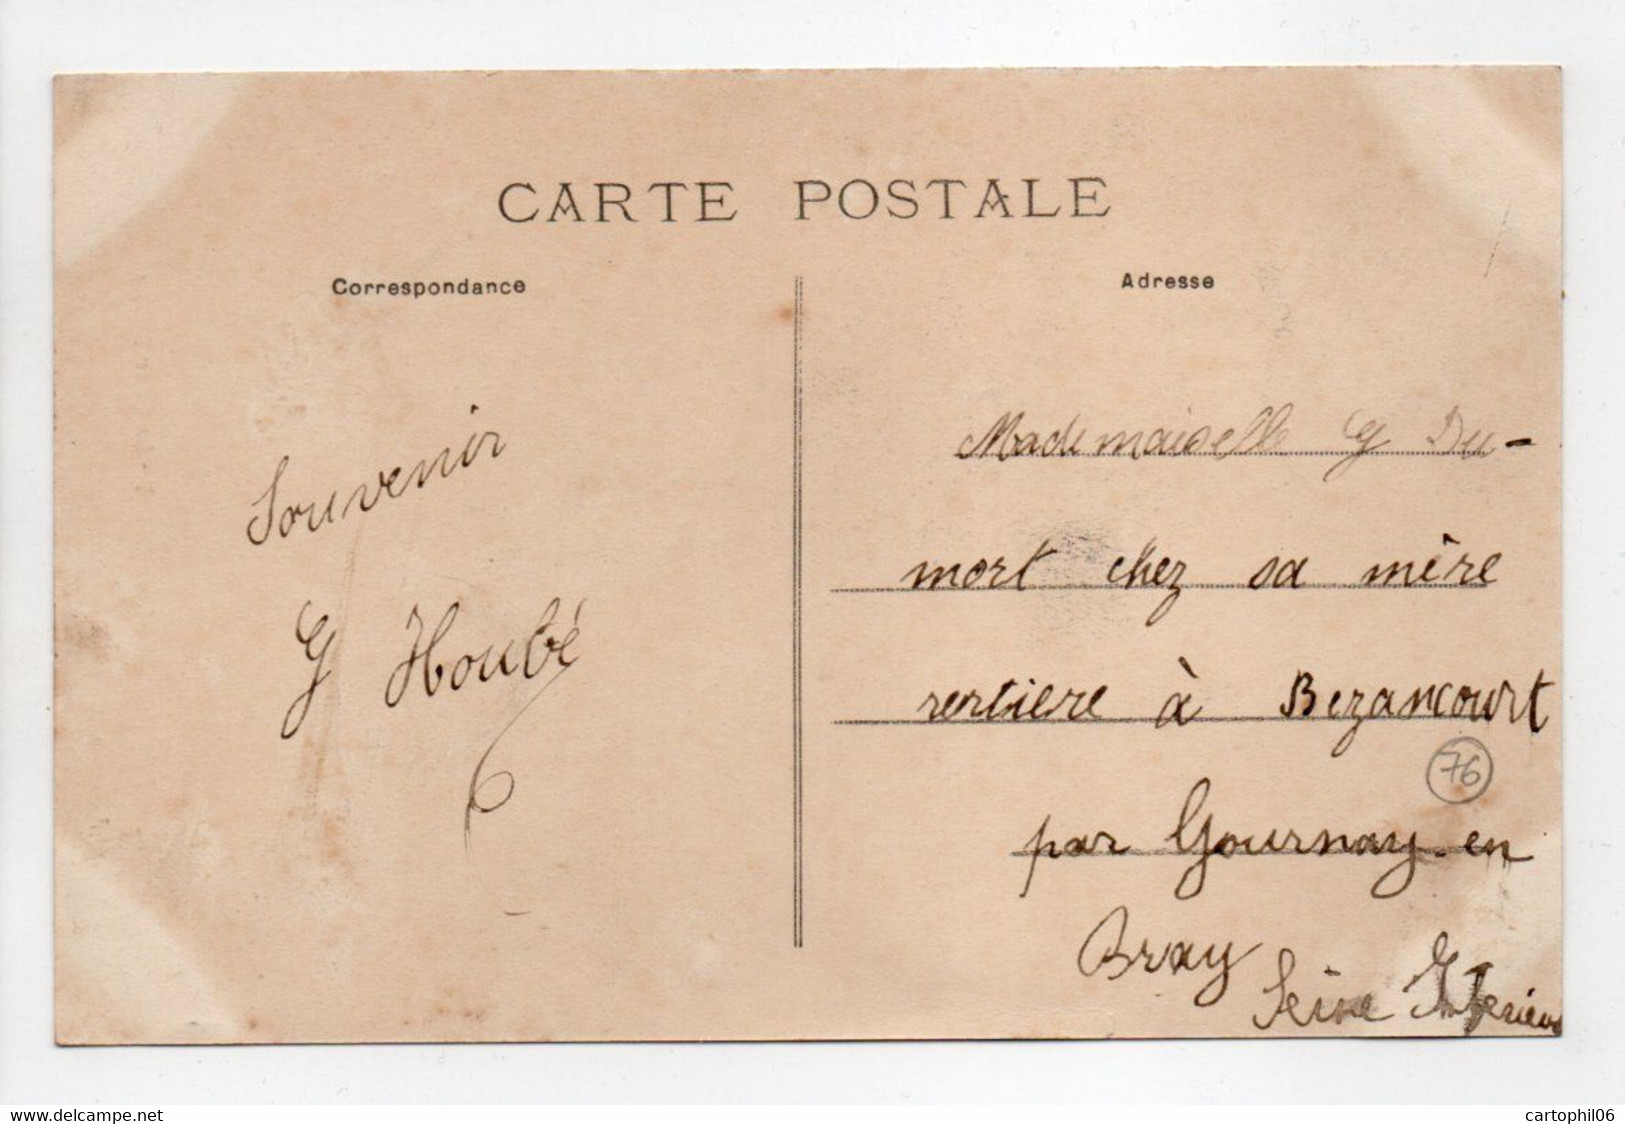 CARTE POSTALE
Correspondance
Adresse
Souvenir
G Houbé
Mademoiselle G Du-
mort chez sa mère
rentiere à Bezancourt
76
par Gournay-en
Bray
Seine Inferieur
www.delcampe.net
cartophil06